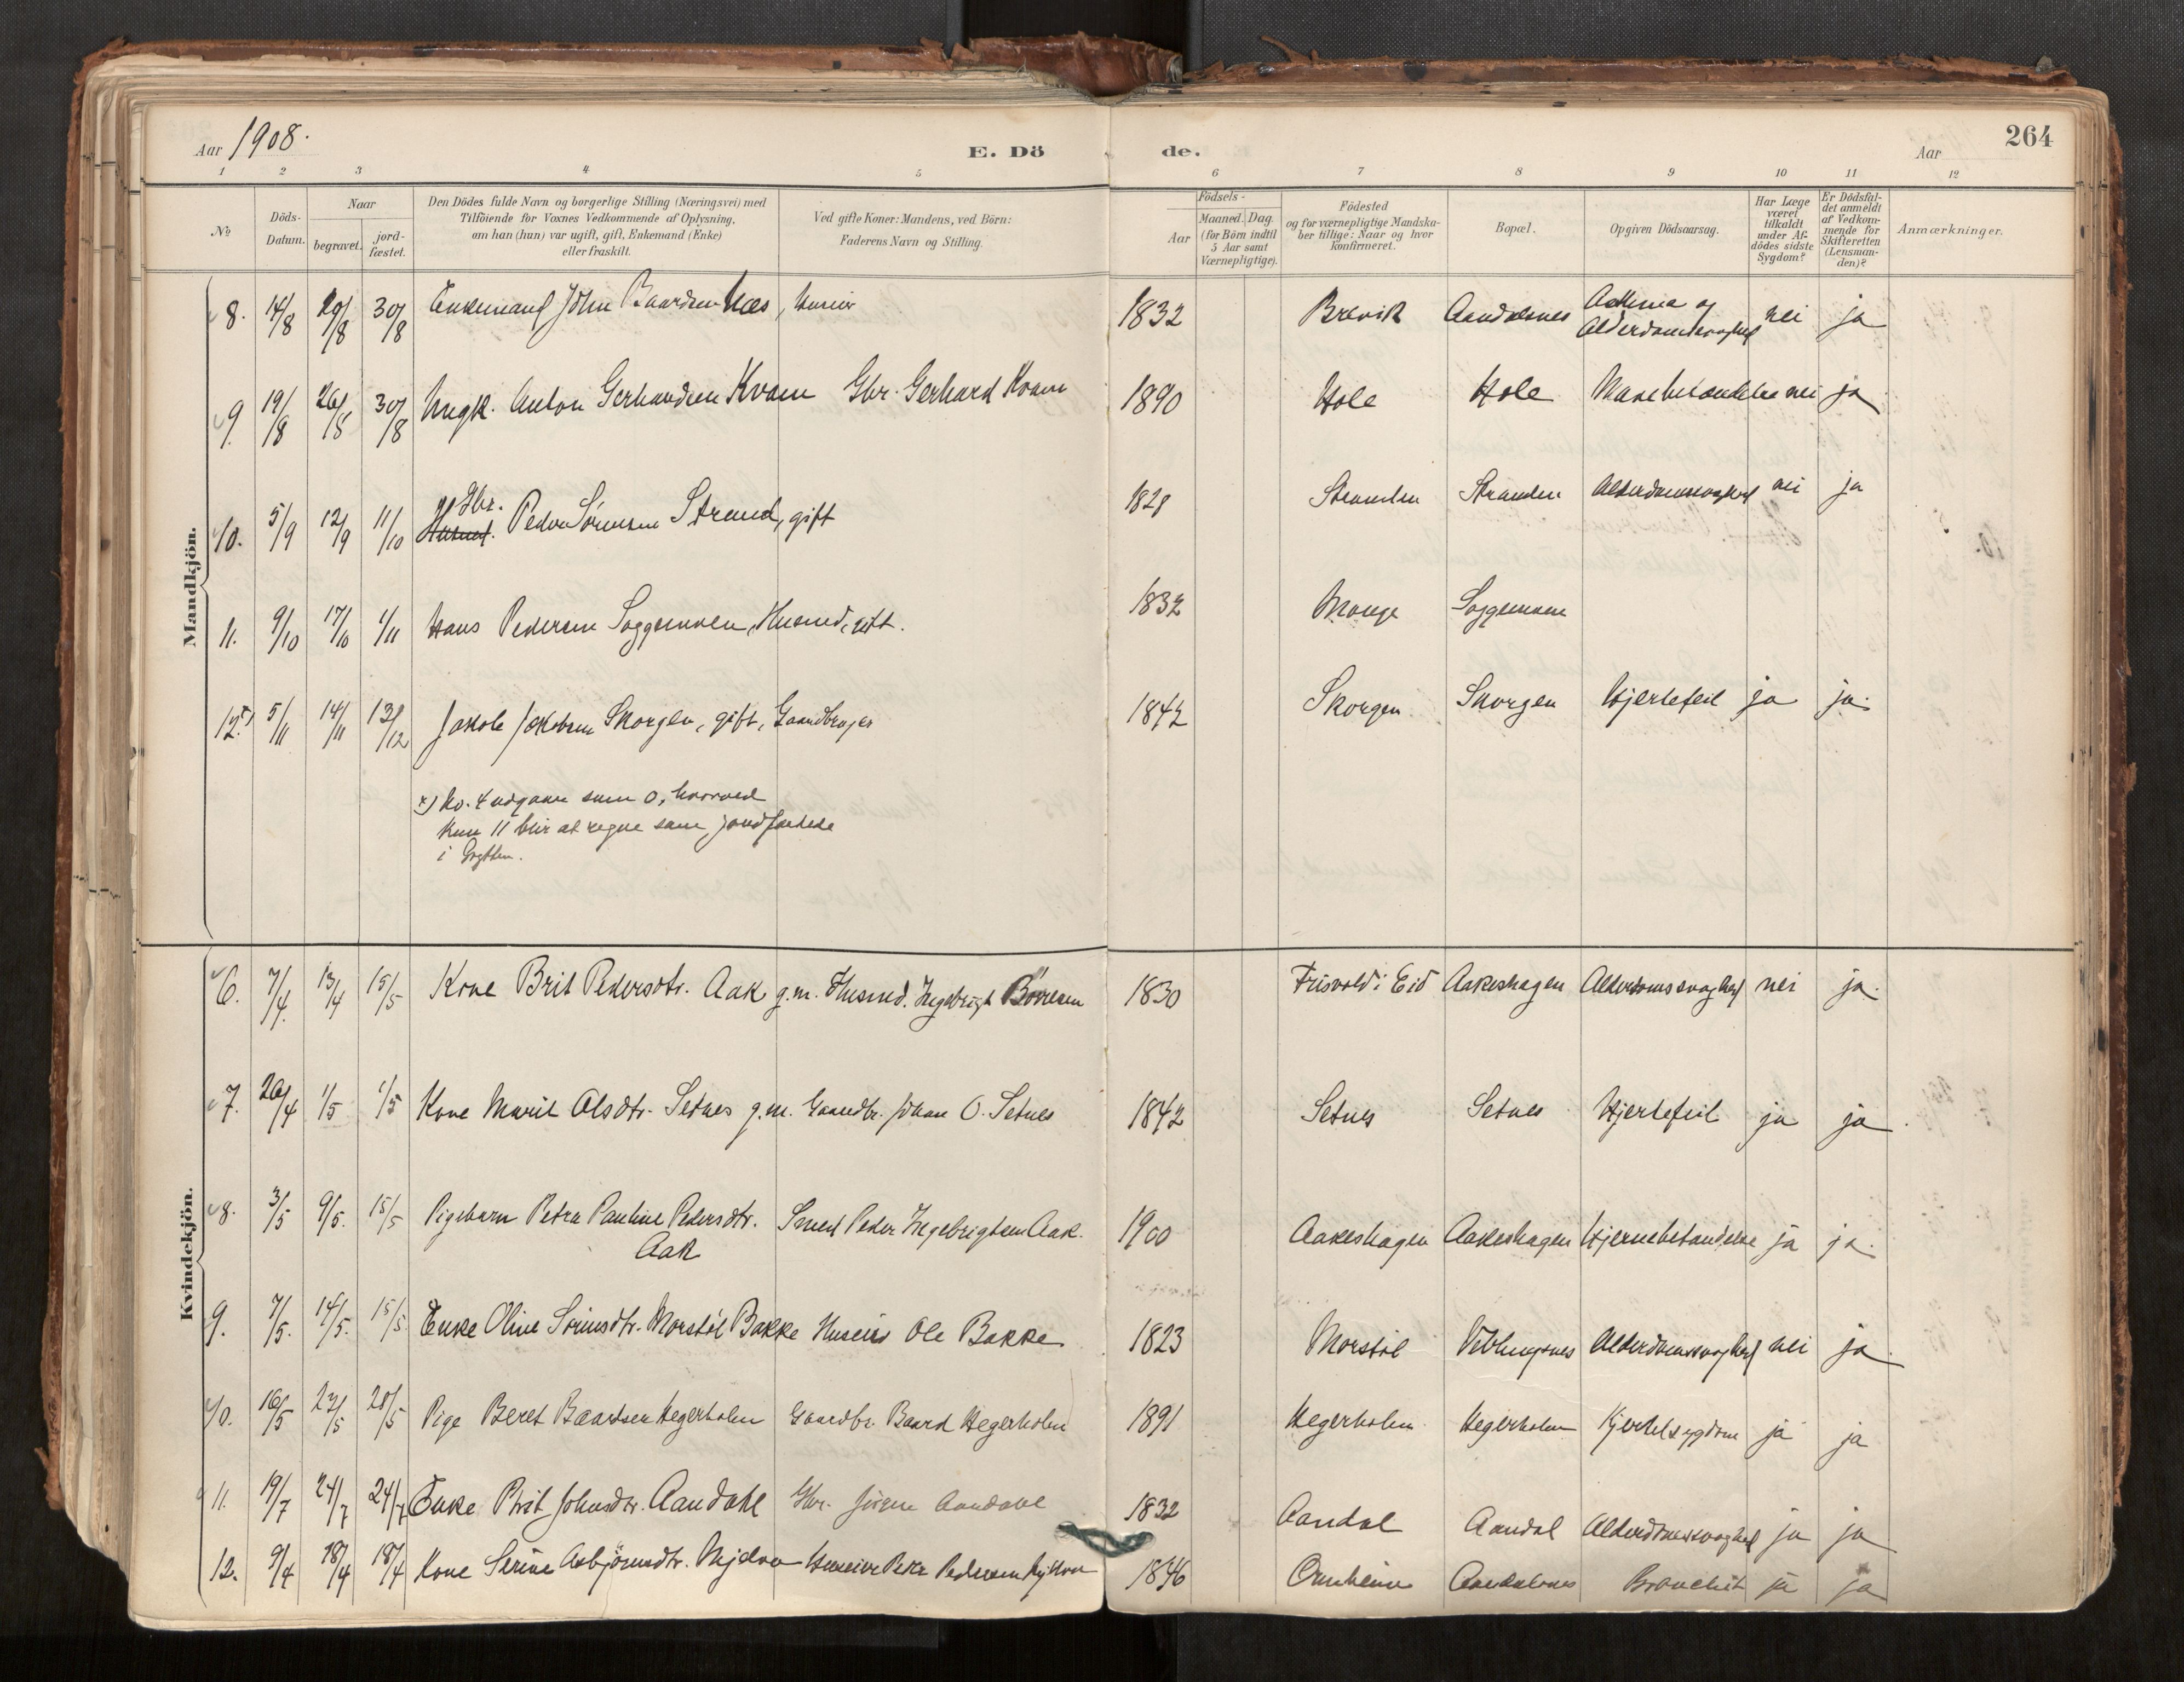 Aar 1908.
E. Döde.
Aar
264
1 2 3 4 5 6 7 8 9 10 11 12
No
Döds-Datum.
Naar
begravet.
jordfæstet.
Den Dödes fulde Navn og borgerlige Stilling (Næringsvei) med
Tilföiende for Voxnes Vedkommende af Oplysning,
om han (hun) var ugift, gift, Enkemand (Enke)
eller fraskilt.
Ved gifte Koner: Mandens, ved Börn:
Faderens Navn og Stilling.
Födsels-
Aar
Maaned. Dag.
(for Börn indtil
5 Aar samt
Værnepligtige).
Födested
og for værnepligtige Mandska-
ber tillige: Naar og hvor
konfirmeret.
Bopæl.
Opgiven Dödsaarsag.
Har Læge
været
tilkaldt
under Af-
dödes sidste
Sygdom?
Er Dödsfal-
det anmeldt
af Vedkom-
mende for
Skifteretten
(Lensman-
den)?
Anmærkninger.
Mandkjön.
8. 14/8 29/8 30/8 Enkemand John Baardsen Næs, Huseier 1832 Brevik Aandalsnes Asthma og Alderdomssvaghed nei ja
9. 19/8 26/8 30/8 Ungk. Anton Gerhardsen Kvam Gbr. Gerhard Kvam 1890 Hole Hole nei ja
10. 5/9 12/9 11/10 Gbr. Peder Sörensen Strand, gift 1828 Stranden Stranden Alderdomssvaghed nei ja
11. 9/10 17/10 1/11 Hans Pedersen Soggemoen, Husmd, gift. 1832 Monge Soggemoen
12. x) 5/11 14/11 13/12 Jakob Jakobsen Skorgen, gift, Gaardbruger 1842 Skorgen Skorgen Hjertefeil ja ja.
x) No. 4 udgaar som 0, hvorved
kun 11 blir at regne som jordfæstede
i Grytten.
Kvindekjön.
6. 7/4. 13/4 15/5 Kone Brit Pedersdtr. Aak g.m. Husmd. Ingebrigt Börresen 1830 Frisvold i Eid Aakeshagen Alderdomssvaghed nei ja.
7. 26/4 1/5 1/5 Kone Marit Olsdtr. Setnes g.m. Gaardbr. Johan O. Setnes 1842 Setnes Setnes Hjertefeil ja ja.
8. 3/5 9/5. 15/5 Pigebarn Petra Pauline Pedersdtr. Aak Smed Peder Ingebrigtsen Aak. 1900 Aakeshagen Aakeshagen Hjernebetændelse ja ja.
9. 7/5. 14/5. 15/5 Enke Oline Sörensdtr. Morstöl Bakke Huseier Ole Bakke 1823 Morstöl Veblungsnes Alderdomssvaghed nei ja.
10. 16/5 23/5 28/5 Pige Beret Baardsen Hegerholm Gaardbr. Baard Hegerholm 1891 Hegerholm Hegerholm Kjertelsygdom ja ja
11. 19/7 24/7 24/7 Enke Brit Johnsdtr. Aandahl Gbr. Jörgen Aandahl 1832 Aandal Aandal Alderdomssvaghed ja ja
12. 9/4 18/4 18/4 Kone Serine Asbjörnsdtr. Mjelva Huseier Pedersen 1846 Ornheim Aandalsnes Bronchit ja ja